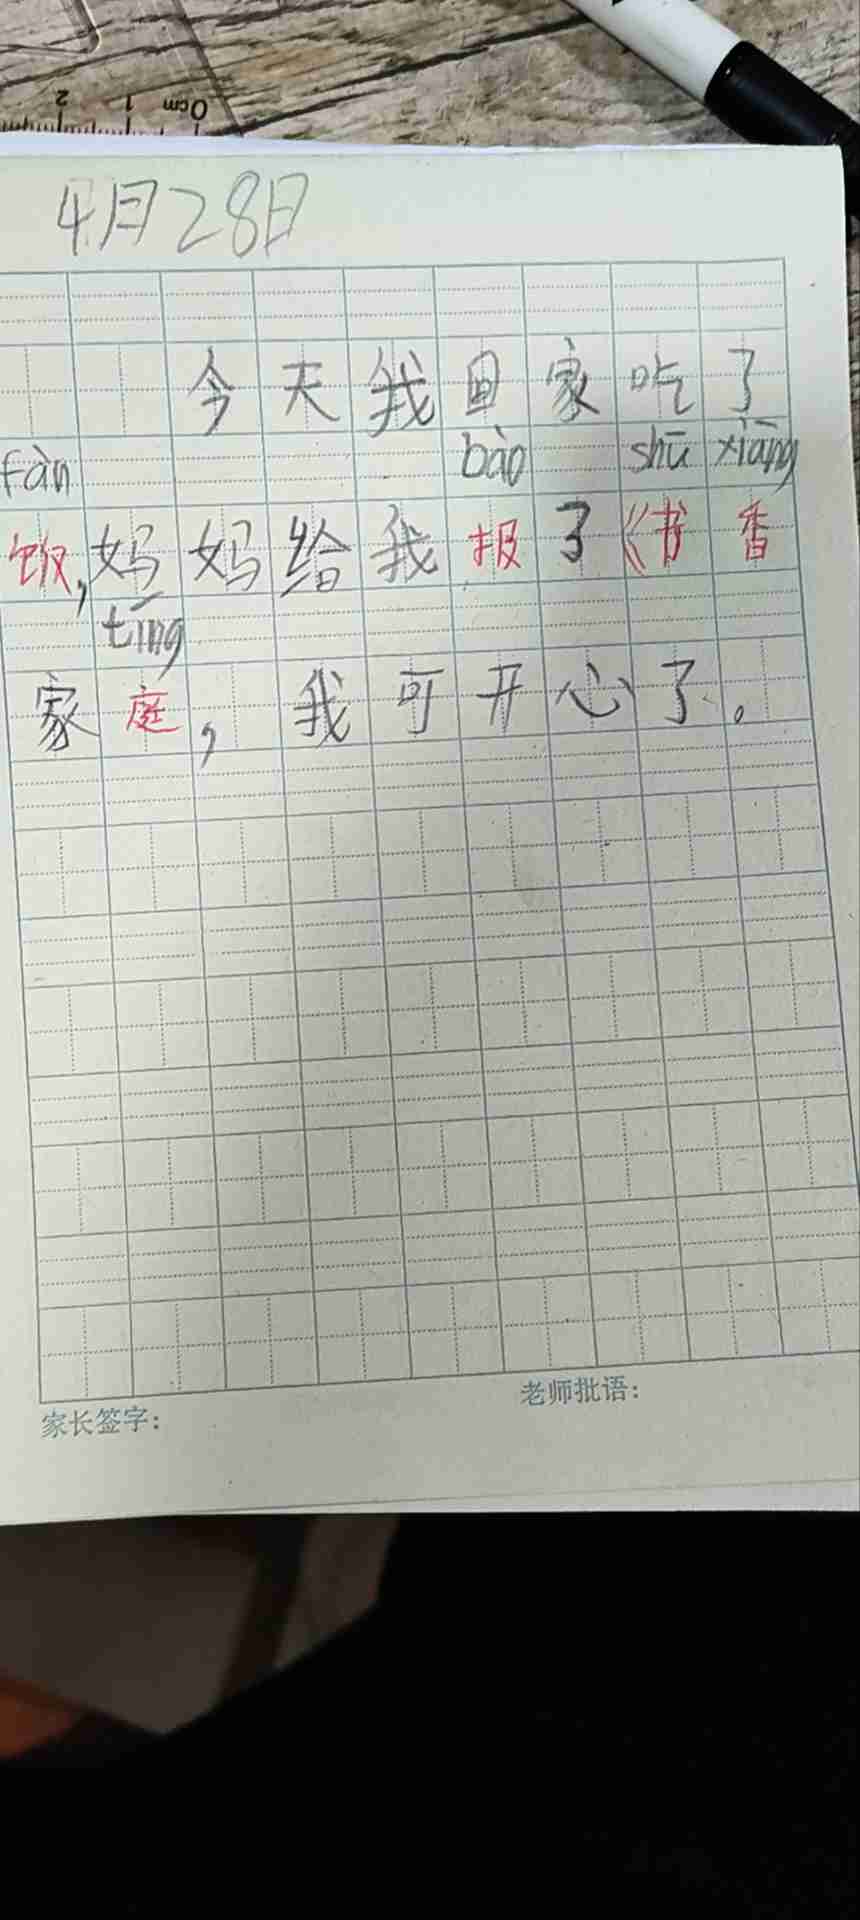 2 1 0cm
4月28日
今天我回家吃了
fàn bào shū xiāng
饭,妈妈给我报了《书香
tíng
家庭,我可开心了。
家长签字: 老师批语: